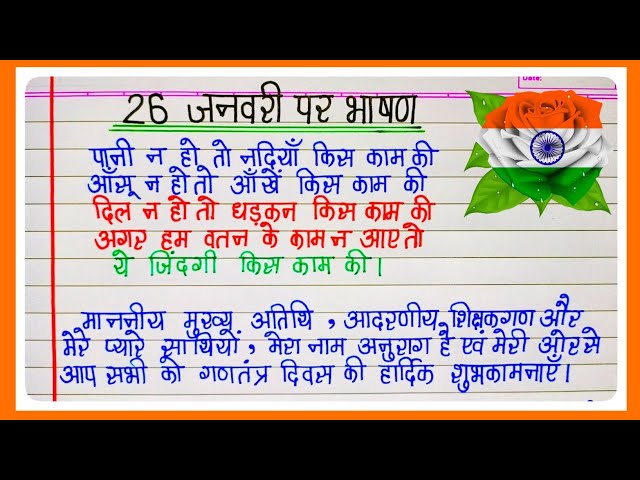 Date:
26 जनवरी पर भाषण
पानी न हो तो नदियाँ किस काम की
आँसू न हो तो आँखें किस काम की
दिल न हो तो धड़कन किस काम की
अगर हम वतन के काम न आए तो
ये जिंदगी किस काम की।
माननीय मुख्य अतिथि, आदरणीय शिक्षकगण और
मेरे प्यारे साथियों, मेरा नाम अनुराग है एवं मेरी ओर से
आप सभी को गणतंत्र दिवस की हार्दिक शुभकामनाएँ।